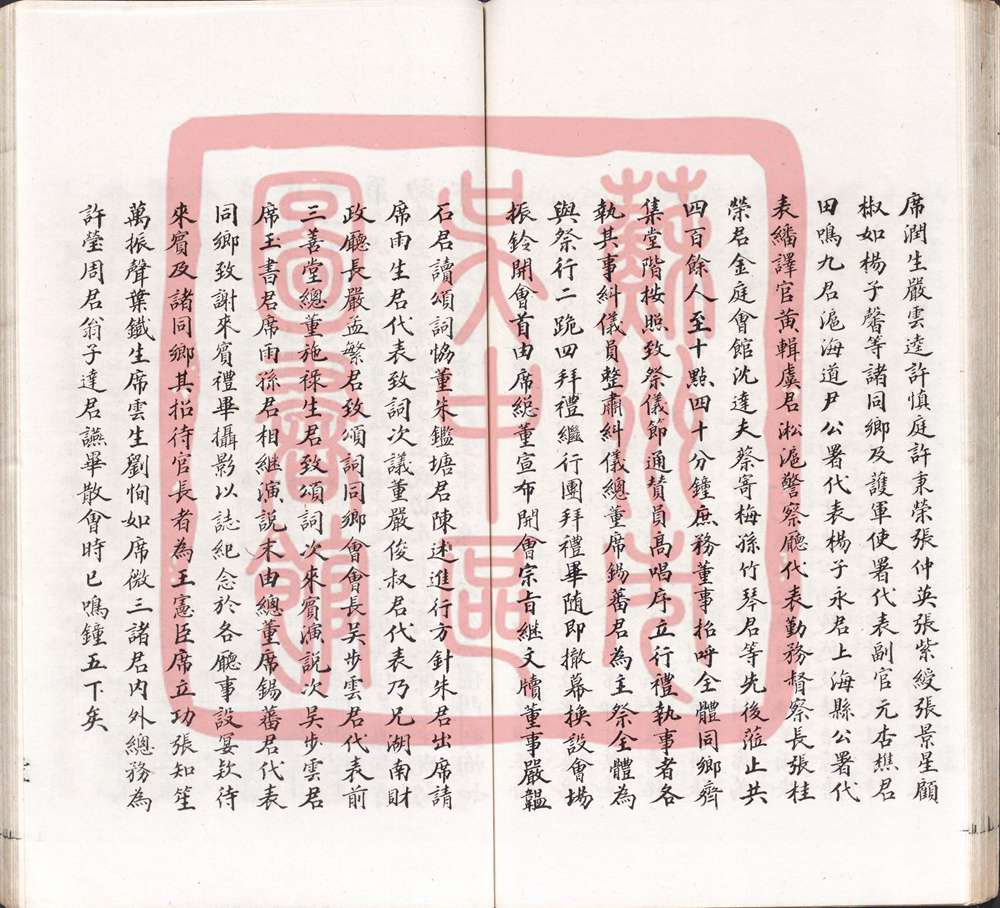 席潤生嚴雲逵許慎庭許東榮張仲英張紫綬張景星顧
椒如楊子馨等諸同鄉及護軍使署代表副官元杏樵君
田鳴九君滬海道尹公署代表楊子永君上海縣公署代
表繙譯官黃輯虞君淞滬警察廳代表勤務督察長張桂
榮君金庭會館沈達夫蔡寄梅孫竹琴君等先後蒞止共
四百餘人至十點四十分鐘庶務董事招呼全體同鄉齊
集堂階桉照致祭儀節通贊員高唱序立行禮執事者各
執其事糾儀員整肅糾儀總董席錫蕃君為主祭全體為
與祭行二跪四拜禮繼行團拜禮畢隨即撤幕換設會場
振鈴開會首由席総董宣布開會宗旨继文牘董事嚴韞
石君讀頌詞協董朱鑑塘君陳述進行方針朱君出席請
席雨生君代表致詞次議董嚴俊叔君代表乃兄湖南財
政廳長嚴孟繁君致頌詞同鄉會會長吴步雲君代表前
三善堂總董施祿生君致頌詞次來賓演説次吴步雲君
席玉書君席雨孫君相継演説末由總董席錫蕃君代表
同鄉致謝來賓禮畢攝影以誌紀念於各廳事設宴欵待
來賓及諸同鄉其招待官長者為王憲臣席立功張知笙
萬振聲葉鐵生席雲生劉恂如席微三諸君内外總務為
許瑩周君翁子達君讌畢散會時已鳴鐘五下矣
蘇州市
吳中區
圖書館